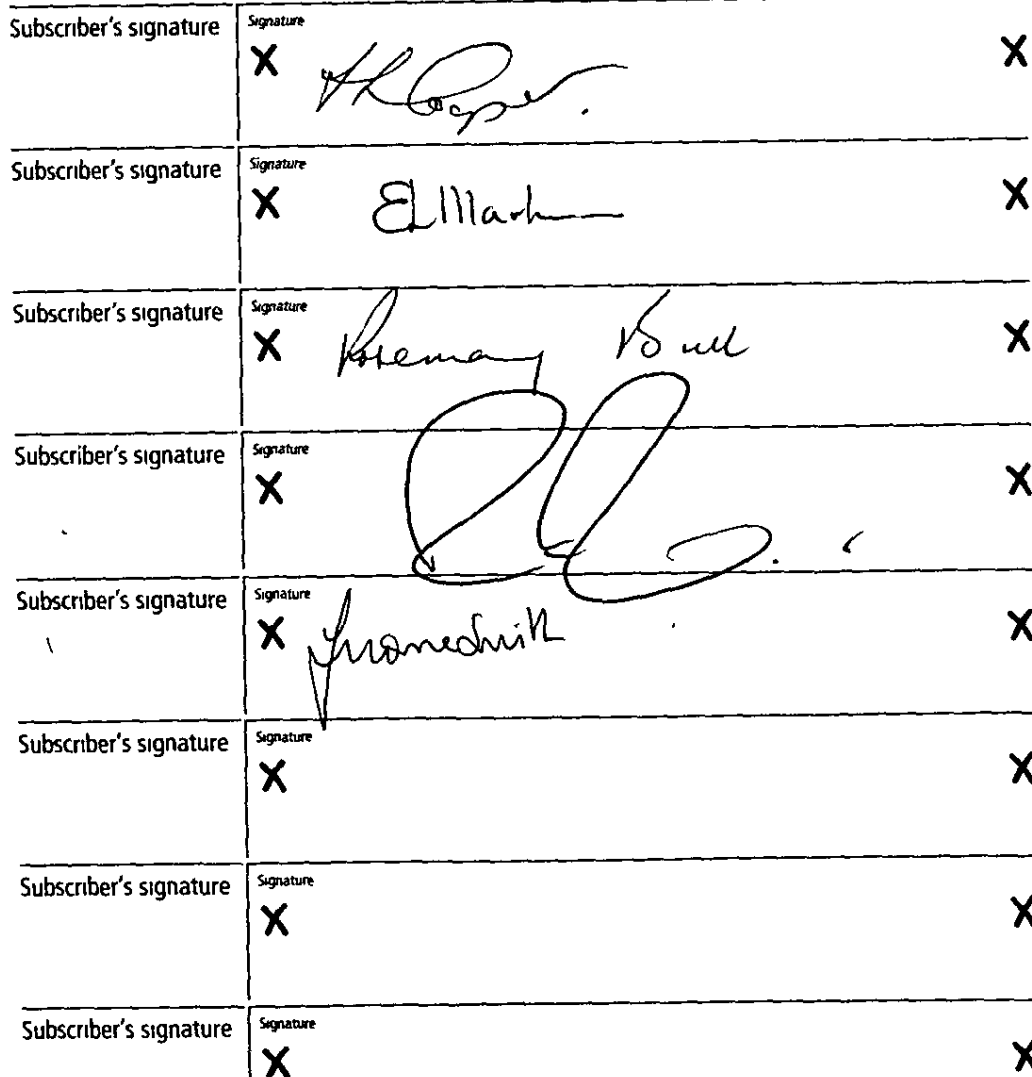 Subscriber's signature
Signature
X X
Subscriber's signature
Signature
X X
Subscriber's signature
Signature
X Rosemary Bull X
Subscriber's signature
Signature
X X
Subscriber's signature
Signature
X X
Subscriber's signature
Signature
X X
Subscriber's signature
Signature
X X
Subscriber's signature
Signature
X X